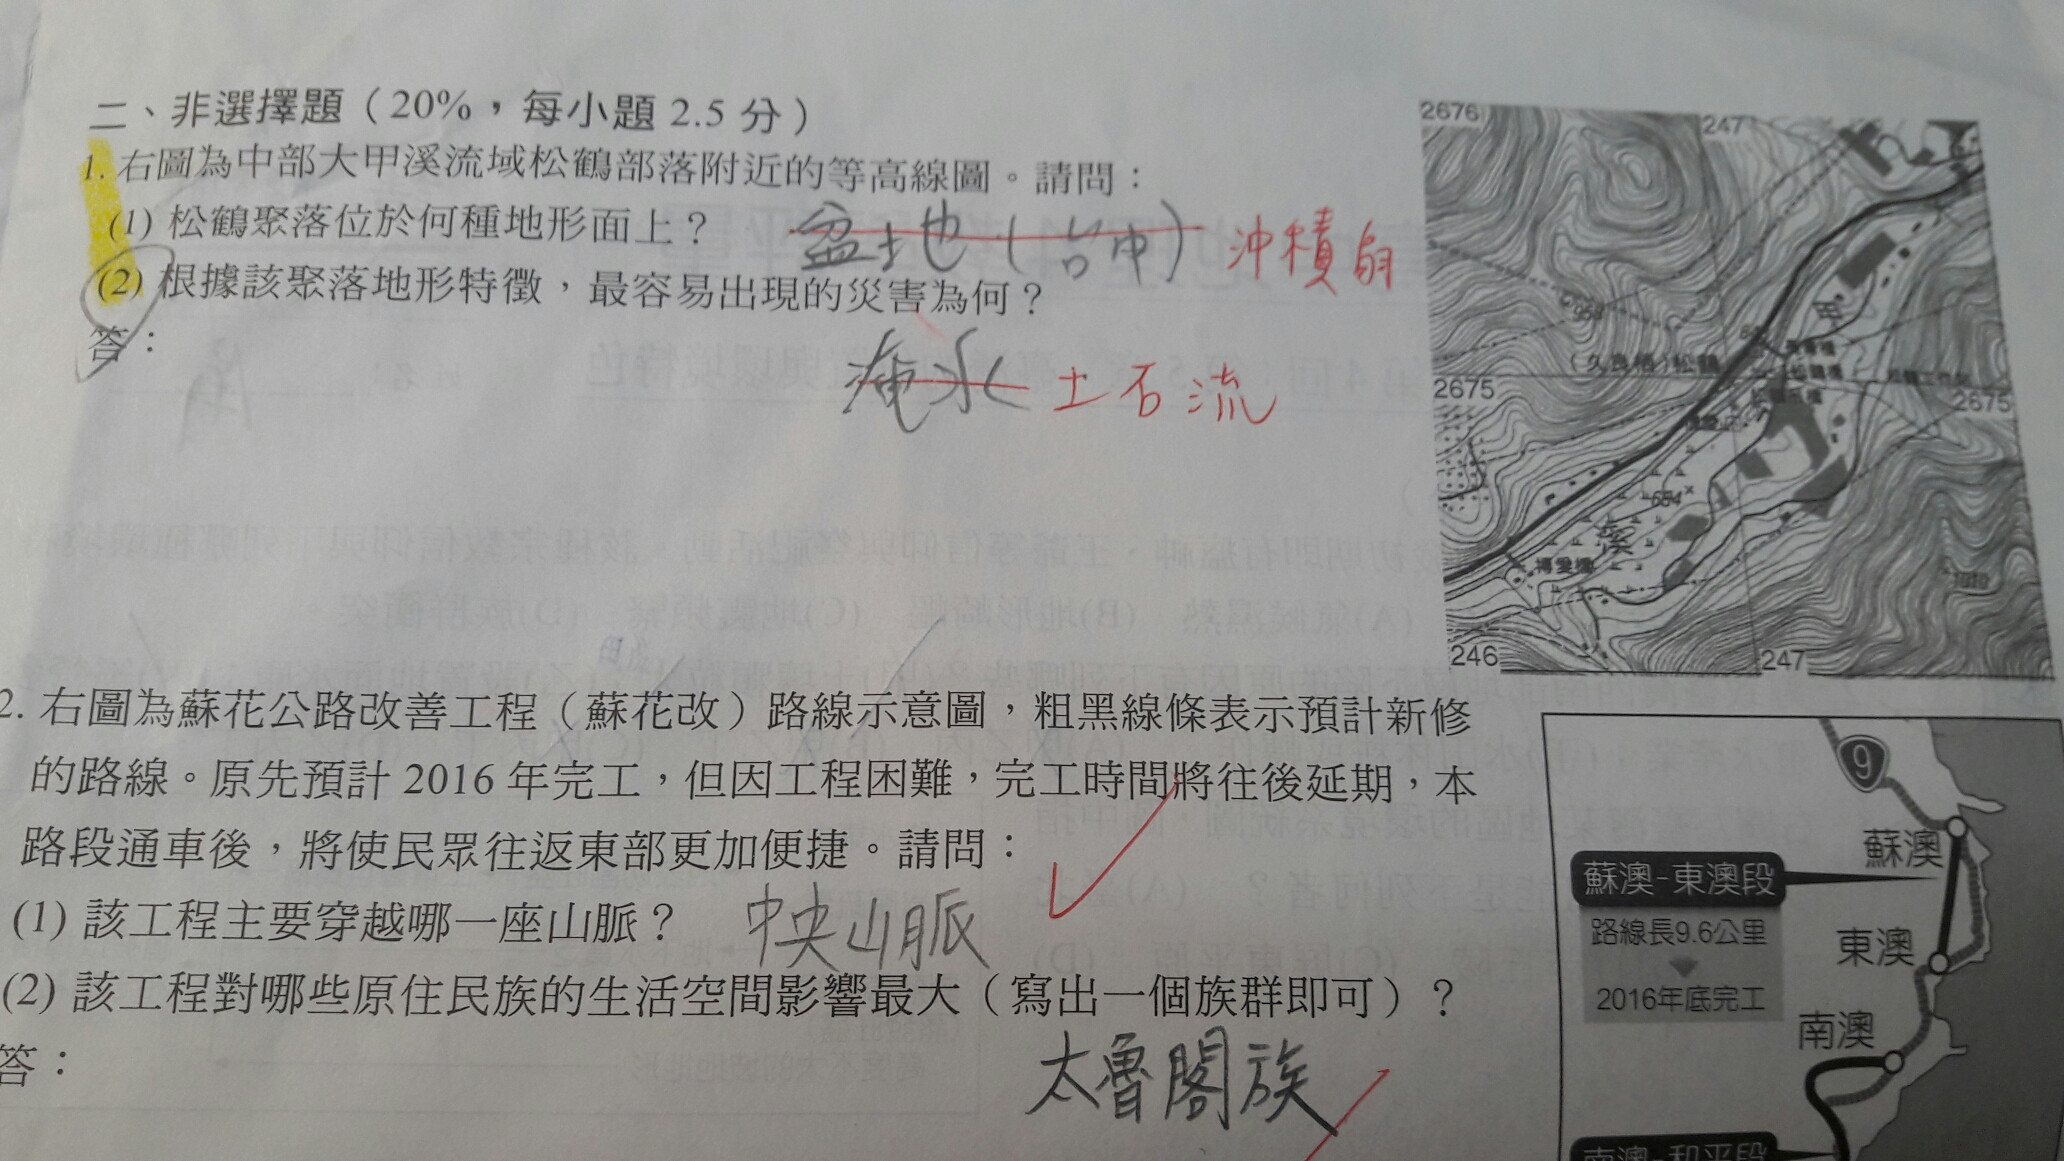 二、非選擇題（20%，每小題 2.5 分）
1. 右圖為中部大甲溪流域松鶴部落附近的等高線圖。請問：
(1) 松鶴聚落位於何種地形面上？ 盆地（台中） 沖積扇
(2) 根據該聚落地形特徵，最容易出現的災害為何？
答：
淹水 土石流
2676
247
甲
(久良栖)松鶴
2675
2675
684
溪
博愛橋
246
247
2. 右圖為蘇花公路改善工程（蘇花改）路線示意圖，粗黑線條表示預計新修
的路線。原先預計 2016 年完工，但因工程困難，完工時間將往後延期，本
路段通車後，將使民眾往返東部更加便捷。請問：
(1) 該工程主要穿越哪一座山脈？ 中央山脈
(2) 該工程對哪些原住民族的生活空間影響最大（寫出一個族群即可）？
答：
太魯閣族
9
蘇澳
蘇澳-東澳段
路線長9.6公里
東澳
2016年底完工
南澳
南澳-和平段